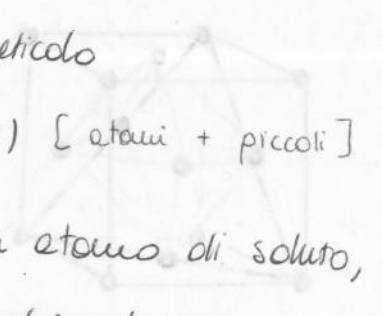 eticolo
) [ atomi + piccoli ]
atomo di soluto,